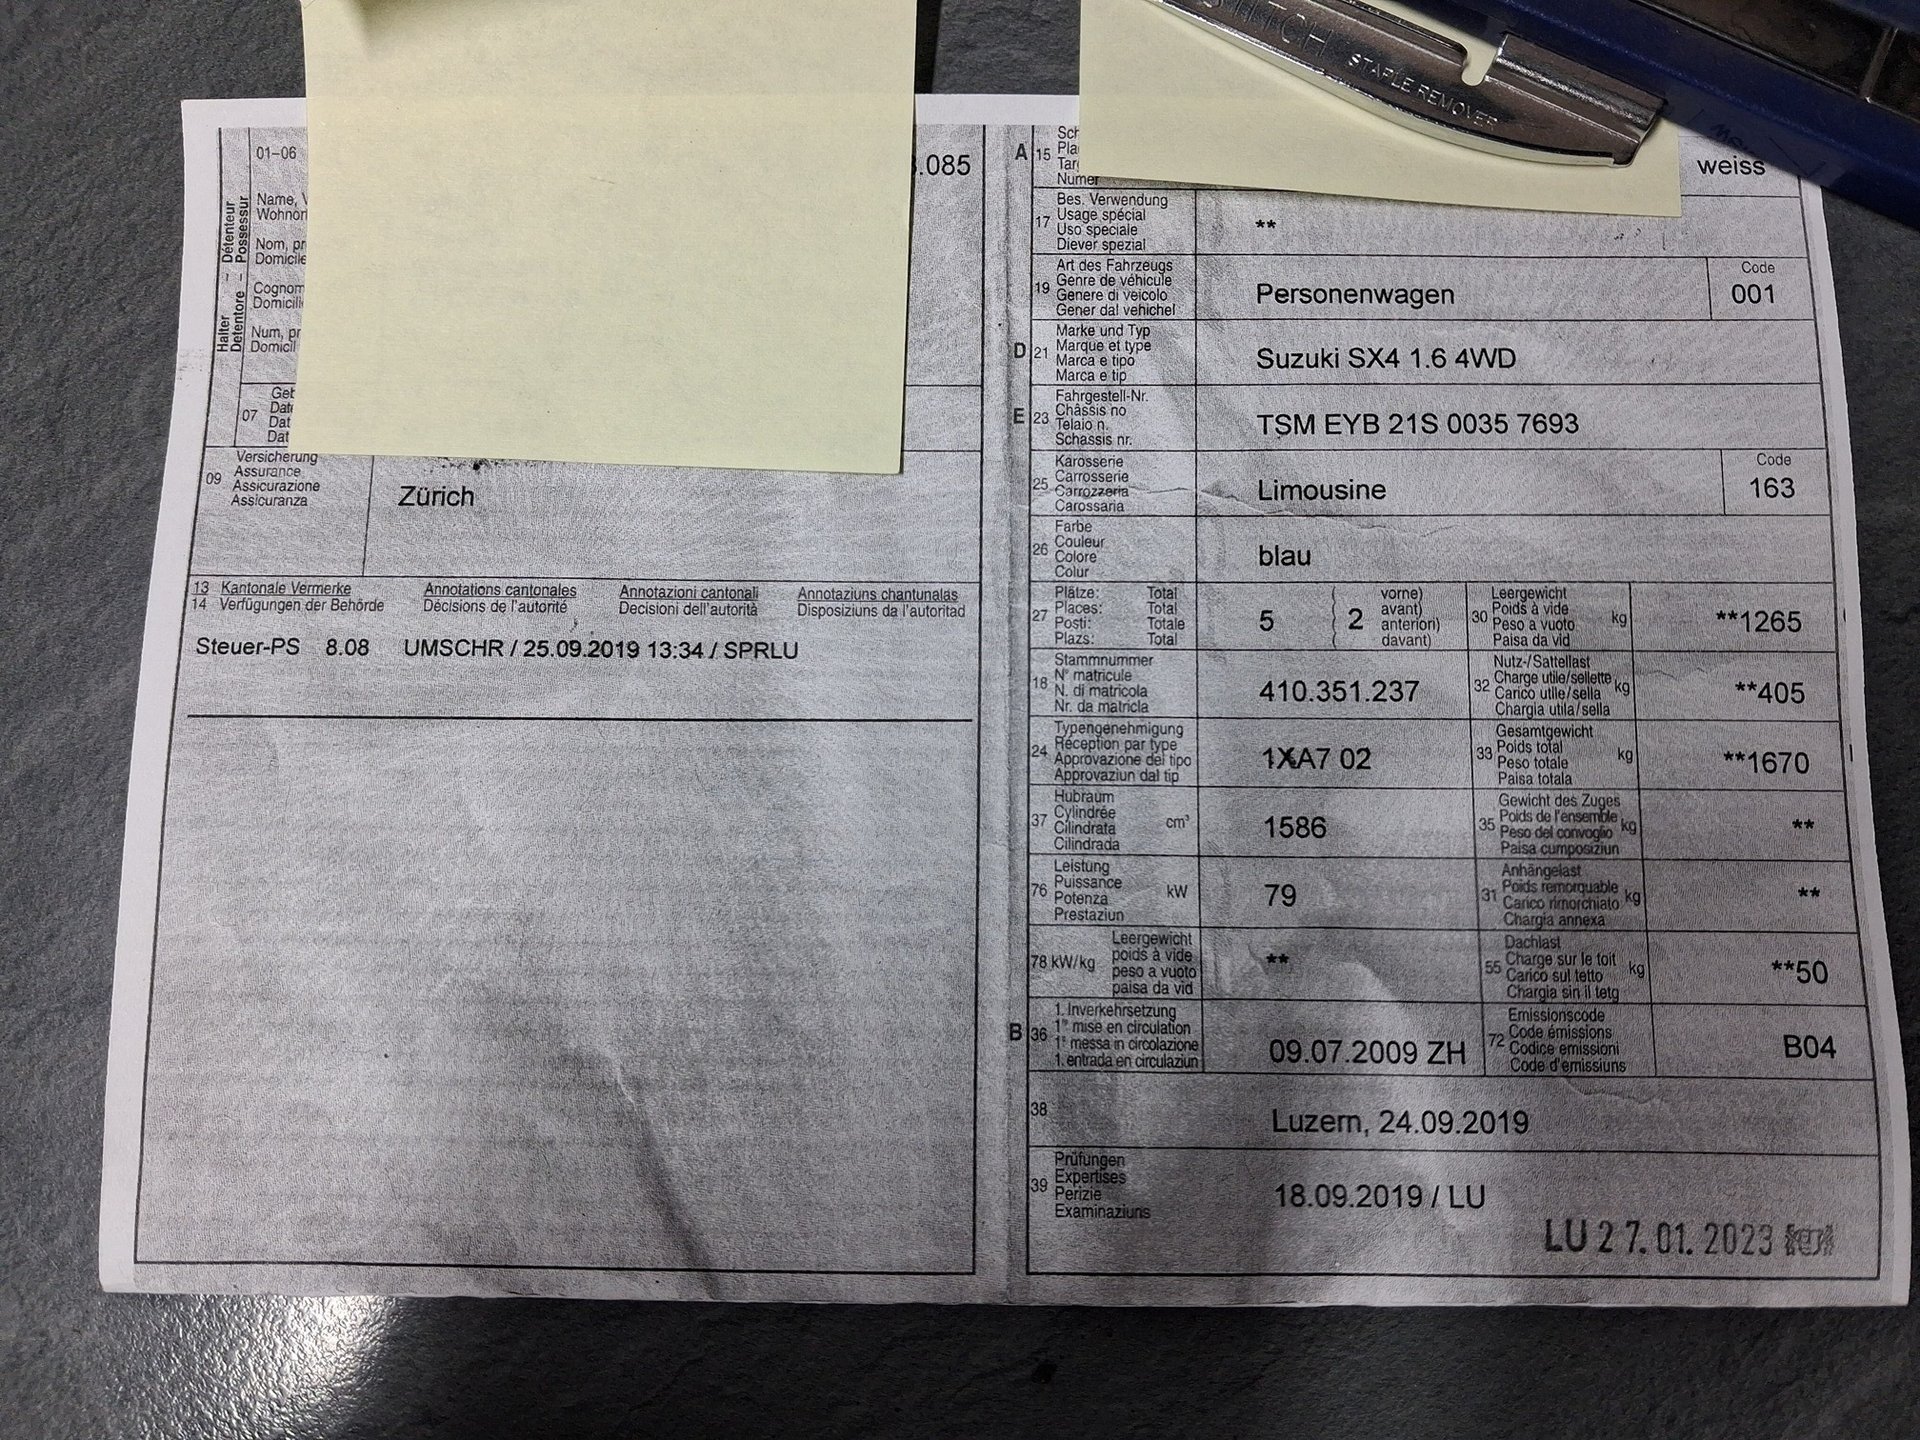 STAPLE REMOVER
01-06
.085
Halter – Détenteur
Detentore – Possessur
Name,
Wohnor
Nom, pr
Domicile
Cognom
Domicili
Num, pr
Domicil
07
Get
Date
Dat
Dat
09
Versicherung
Assurance
Assicurazione
Assicuranza
Zürich
13 Kantonale Vermerke Annotations cantonales Annotazioni cantonali Annotaziuns chantunalas
14 Verfügungen der Behörde Décisions de l'autorité Decisioni dell'autorità Disposiziuns da l'autoritad
Steuer-PS 8.08 UMSCHR / 25.09.2019 13:34 / SPRLU
A 15
Sch
Pla
Tar
Numer
weiss
17
Bes. Verwendung
Usage spécial
Uso speciale
Diever spezial
**
19
Art des Fahrzeugs
Genre de véhicule
Genere di veicolo
Gener dal vehichel
Personenwagen
Code
001
D 21
Marke und Typ
Marque et type
Marca e tipo
Marca e tip
Suzuki SX4 1.6 4WD
E 23
Fahrgestell-Nr.
Châssis no
Telaio n.
Schassis nr.
TSM EYB 21S 0035 7693
25
Karosserie
Carrosserie
Carrozzeria
Carossaria
Limousine
Code
163
26
Farbe
Couleur
Colore
Colur
blau
27
Plätze: Total
Places: Total
Posti: Totale
Plazs: Total
5 ( 2
vorne)
avant)
anteriori)
davant)
30
Leergewicht
Poids à vide
Peso a vuoto
Paisa da vid
kg
**1265
18
Stammnummer
N° matricule
N. di matricola
Nr. da matricla
410.351.237
32
Nutz-/Sattellast
Charge utile/sellette
Carico utile/sella
Chargia utila/sella
kg
**405
24
Typengenehmigung
Réception par type
Approvazione del tipo
Approvaziun dal tip
1XA7 02
33
Gesamtgewicht
Poids total
Peso totale
Paisa totala
kg
**1670
37
Hubraum
Cylindrée
Cilindrata
Cilindrada
cm³
1586
35
Gewicht des Zuges
Poids de l'ensemble
Peso del convoglio
Paisa cumposiziun
kg
**
76
Leistung
Puissance
Potenza
Prestaziun
kW
79
31
Anhängelast
Poids remorquable
Carico rimorchiato
Chargia annexa
kg
**
78 kW/kg
Leergewicht
poids à vide
peso a vuoto
paisa da vid
**
55
Dachlast
Charge sur le toit
Carico sul tetto
Chargia sin il tetg
kg
**50
B 36
1. Inverkehrsetzung
1re mise en circulation
1a messa in circolazione
1. entrada en circulaziun
09.07.2009 ZH
72
Emissionscode
Code émissions
Codice emissioni
Code d'emissiuns
B04
38
Luzern, 24.09.2019
39
Prüfungen
Expertises
Perizie
Examinaziuns
18.09.2019 / LU
LU 27.01.2023